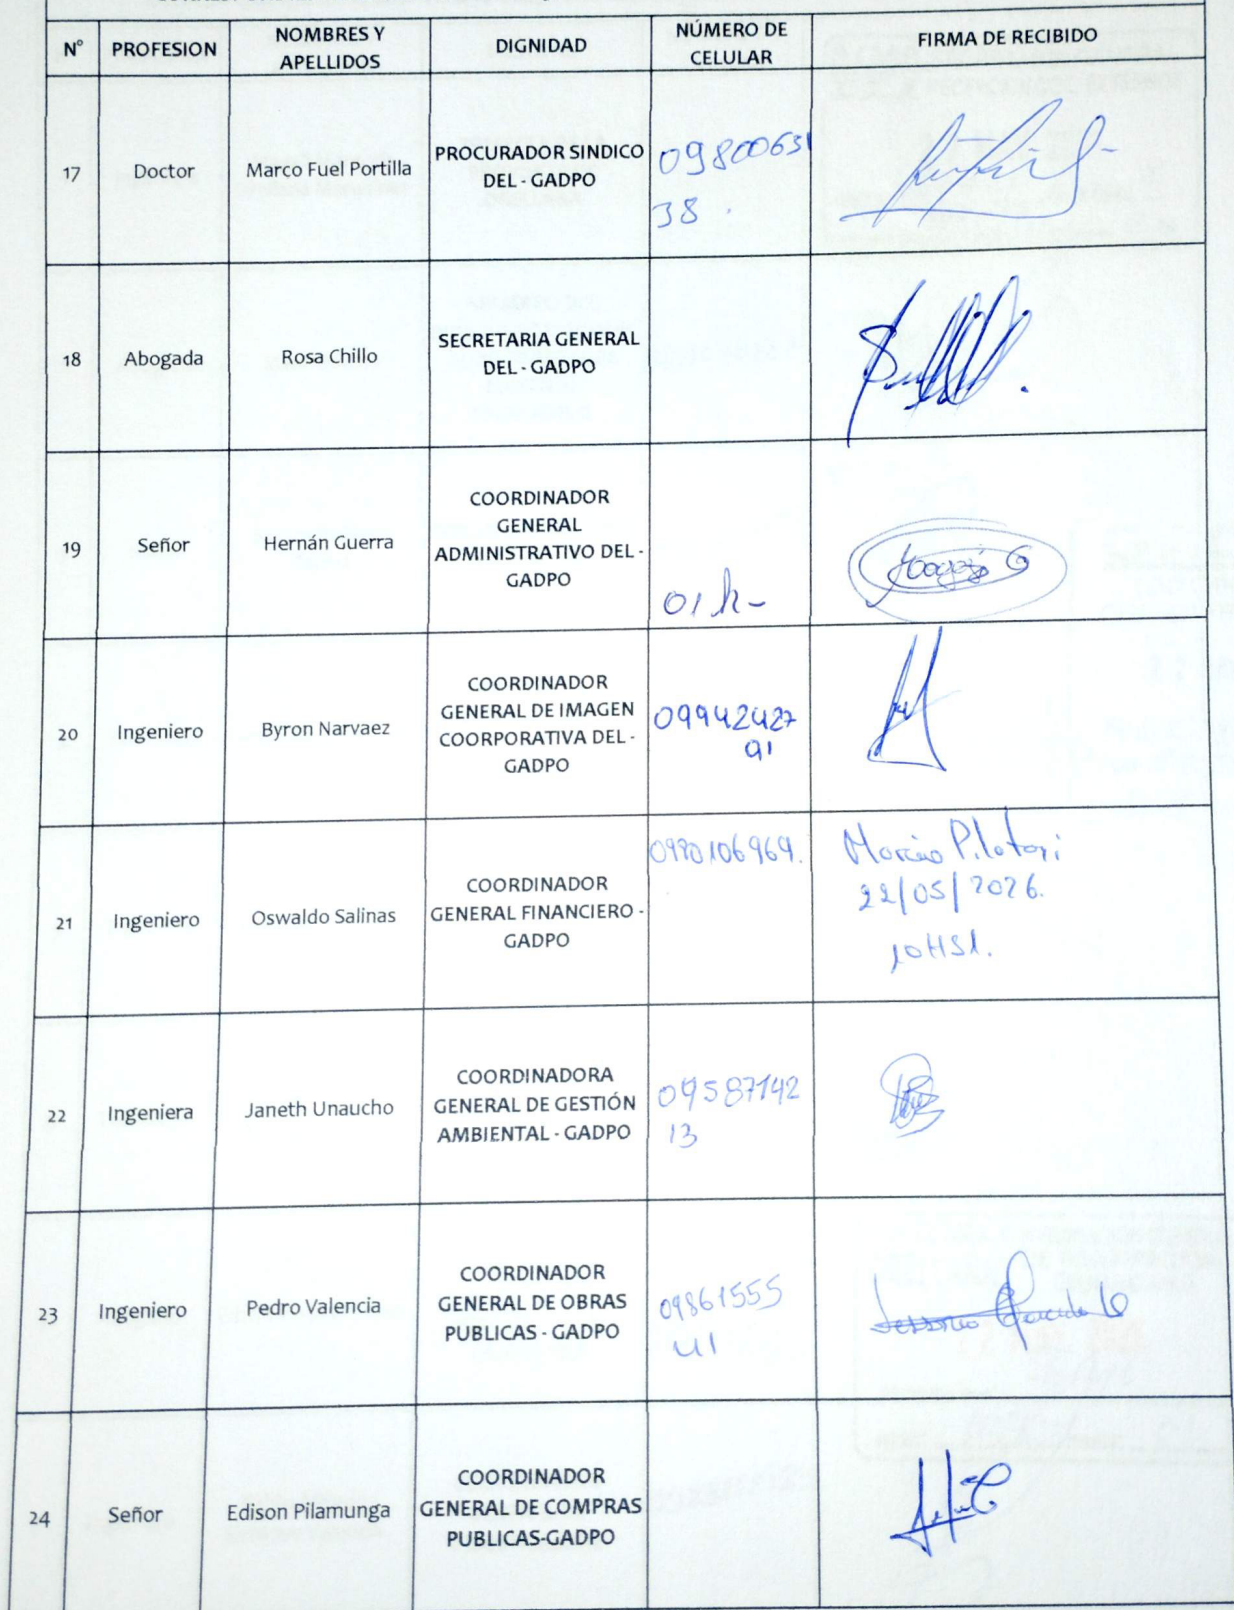 N° PROFESION NOMBRES Y APELLIDOS DIGNIDAD NÚMERO DE CELULAR FIRMA DE RECIBIDO
17 Doctor Marco Fuel Portilla PROCURADOR SINDICO DEL - GADPO 09800631 38 .
18 Abogada Rosa Chillo SECRETARIA GENERAL DEL - GADPO
19 Señor Hernán Guerra COORDINADOR GENERAL ADMINISTRATIVO DEL - GADPO
20 Ingeniero Byron Narvaez COORDINADOR GENERAL DE IMAGEN COORPORATIVA DEL - GADPO 09942427 91
21 Ingeniero Oswaldo Salinas COORDINADOR GENERAL FINANCIERO - GADPO 22/05/2026.
22 Ingeniera Janeth Unaucho COORDINADORA GENERAL DE GESTIÓN AMBIENTAL - GADPO 09587142 13
23 Ingeniero Pedro Valencia COORDINADOR GENERAL DE OBRAS PUBLICAS - GADPO 09861555 41
24 Señor Edison Pilamunga COORDINADOR GENERAL DE COMPRAS PUBLICAS-GADPO